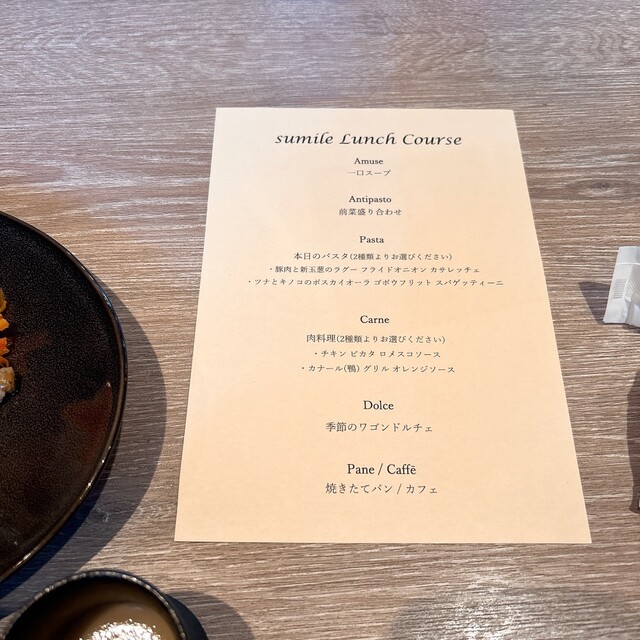 sumile Lunch Course
Amuse
一口スープ
Antipasto
前菜盛り合わせ
Pasta
本日のパスタ(2種類よりお選びください)
・豚肉と新玉葱のラグー フライドオニオン カサレッチェ
・ツナとキノコのボスカイオーラ ゴボウフリット スパゲッティーニ
Carne
肉料理(2種類よりお選びください)
・チキン ピカタ ロメスコソース
・カナール(鴨) グリル オレンジソース
Dolce
季節のワゴンドルチェ
Pane / Caffē
焼きたてパン / カフェ